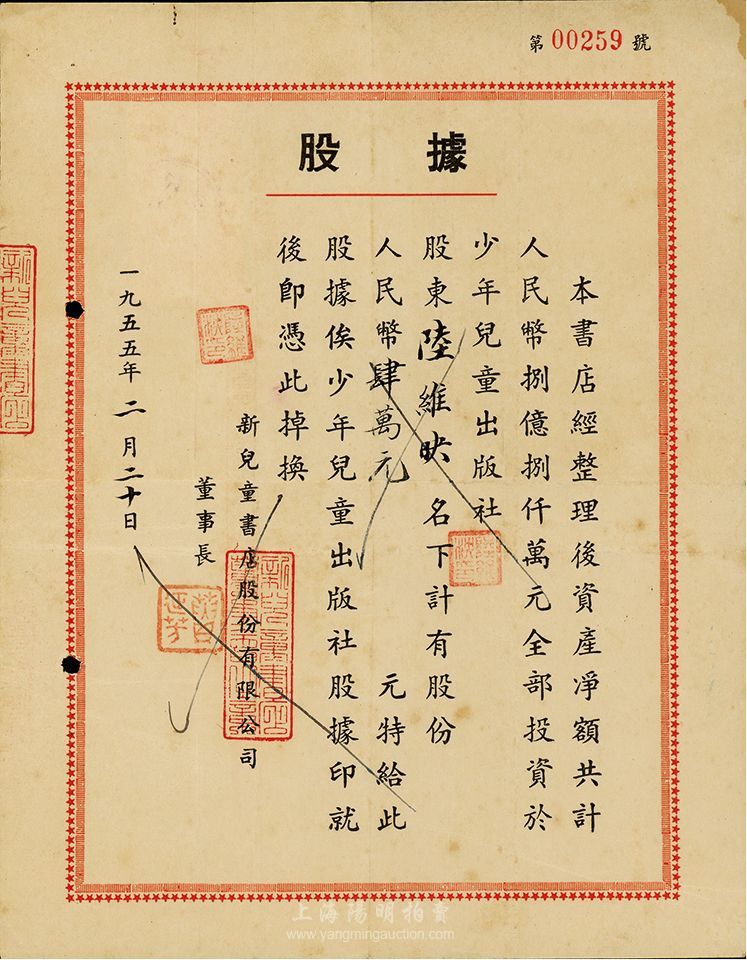 第 00259 號
股據
本書店經整理後資產淨額共計
人民幣捌億捌仟萬元全部投資於
少年兒童出版社
股東陸維映名下計有股份
人民幣肆萬元 元特給此
股據俟少年兒童出版社股據印就
後即憑此掉換
新兒童書店股份有限公司
董事長
一九五五年二月二十日
上海陽明拍賣
www.yangmingauction.com